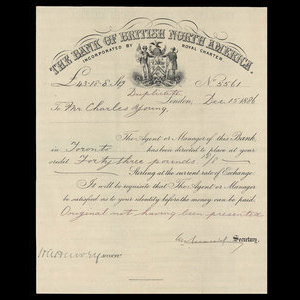 THE BANK OF BRITISH NORTH AMERICA.
INCORPORATED BY ROYAL CHARTER
£43.18.8 Stg No 3561
Duplicate
London, Dec 15 1886
To Mr Charles Young
The Agent or Manager of this Bank
in Toronto has been directed to place at your
credit Forty three pounds 18/8
Sterling at the current rate of Exchange.
It will be requisite that The Agent or Manager
be satisfied as to your identity before the money can be paid.
Original not having been presented
Secretary.